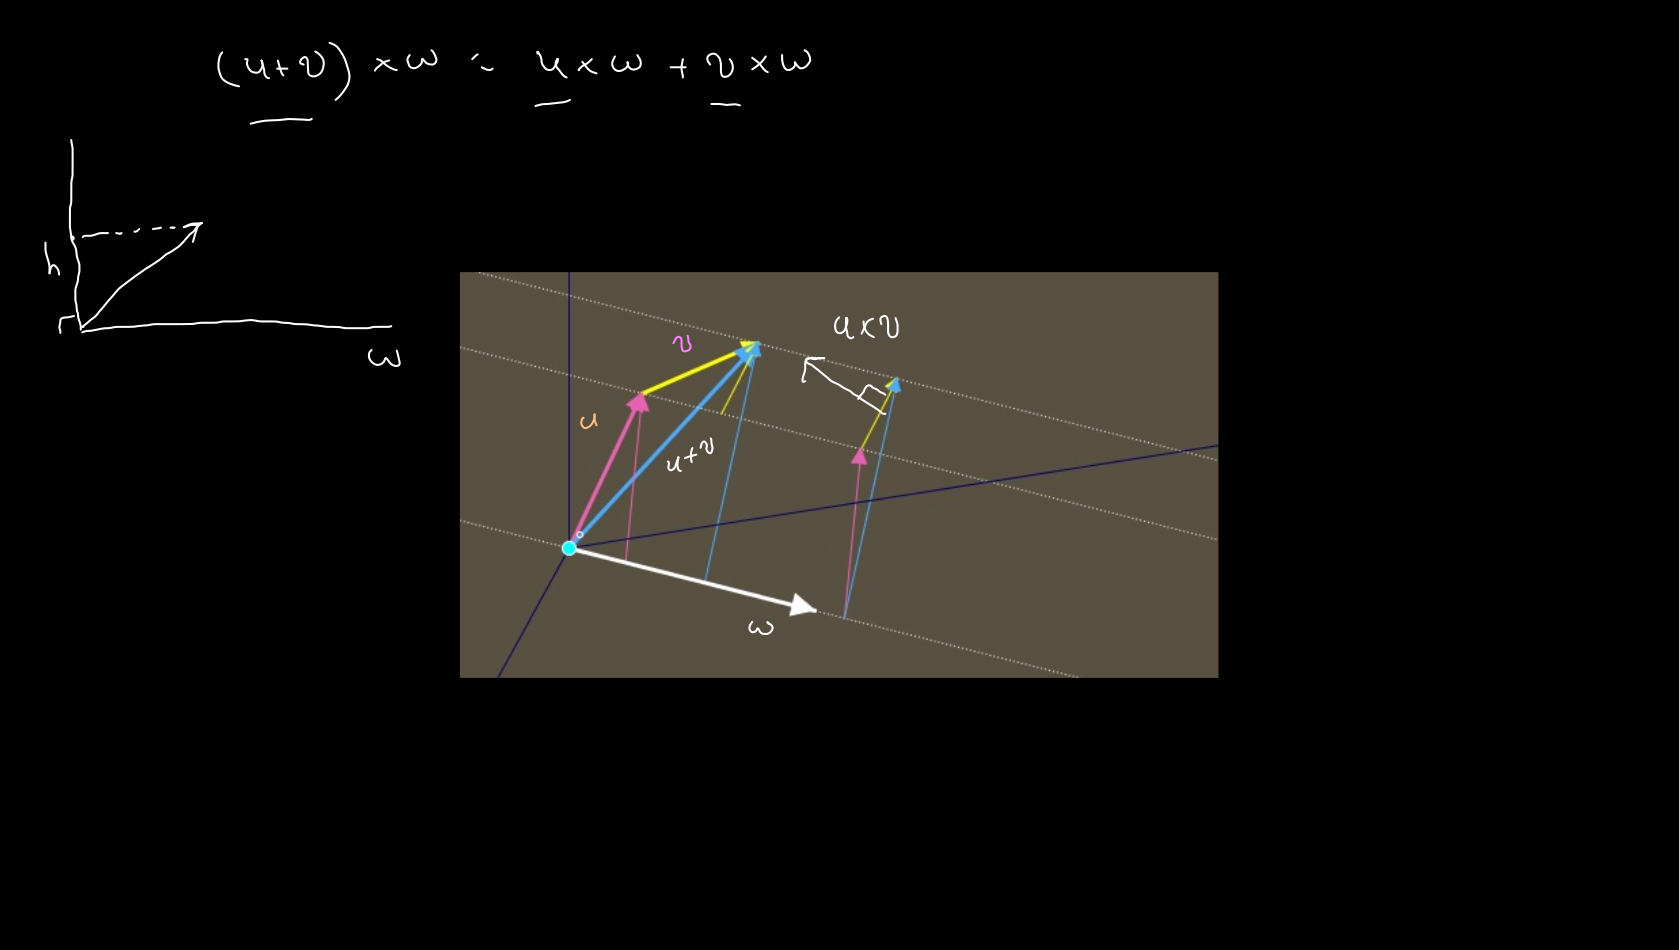 (u+v) × w = u × w + v × w
h
w
v
u × v
u
u+v
w